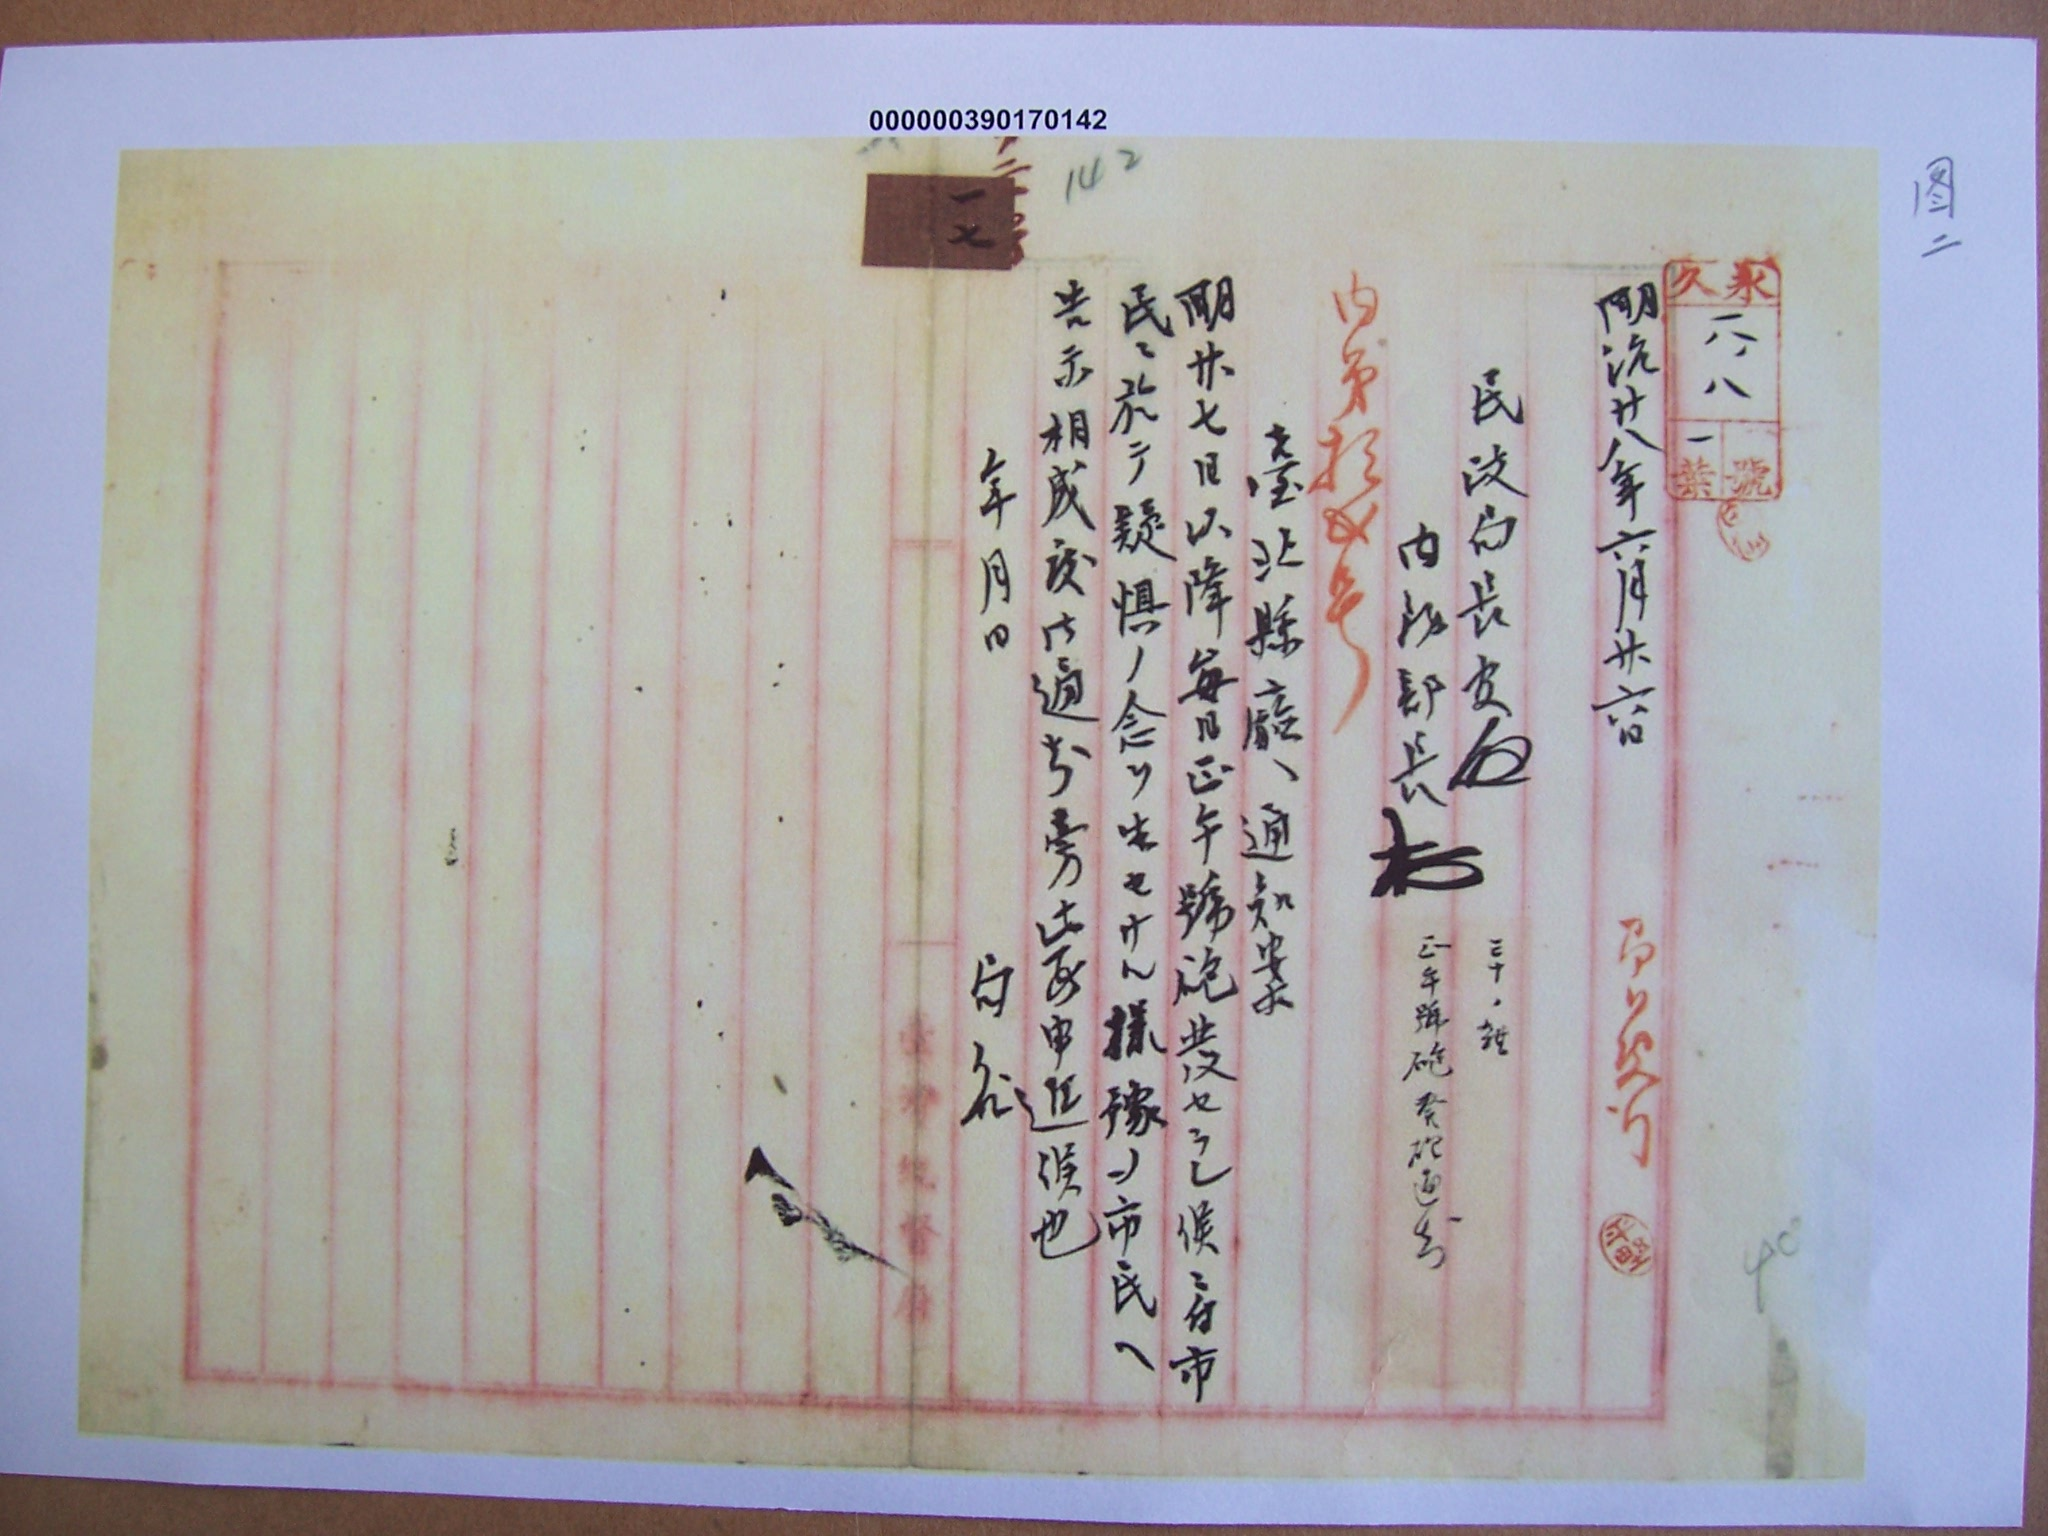 000000390170142
142
一七
图二
永久
一八八
號
一葉
明治廿八年六月廿六日
民政局長官
内務部長
三十、雜
正午號砲發砲通知
内第拾四号
臺北縣廳ヘ通知案
明廿七日以降毎日正午號砲発セラレ候ニ付市
民ニ於テ疑惧ノ念ヲ生セサル様豫メ市民ヘ
告示相成度此
通知旁此段申進候也
年月日
局名
臺灣總督府